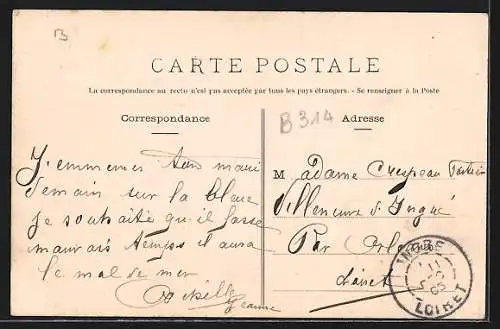 B
CARTE POSTALE
La correspondance au recto n'est pas acceptée par tous les pays étrangers. - Se renseigner à la Poste
Correspondance
J'emmenes ton mari
demain sur la
je souhaite qu'il fasse
mauvais temps il aura
le mal de mer
Jeanne
B 314
Adresse
Madame Crespeau
Villeneuve d'Ingré
Par Orléans
Loiret
INGRÉ
11
05
LOIRET